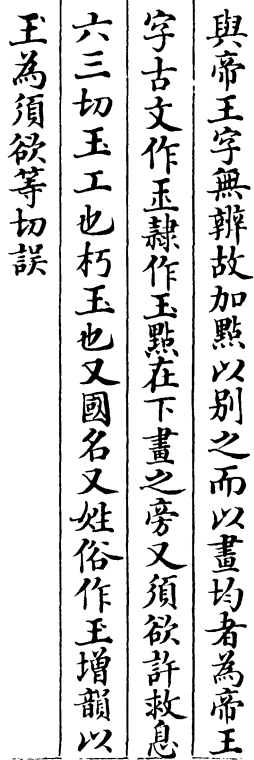 與帝王字無辨故加點以別之而以畫均者為帝王
字古文作𤣪隷作玉點在下畫之旁又須欲許救息
六三切玉工也朽玉也又國名又姓俗作玊增韻以
玊為須欲等切誤